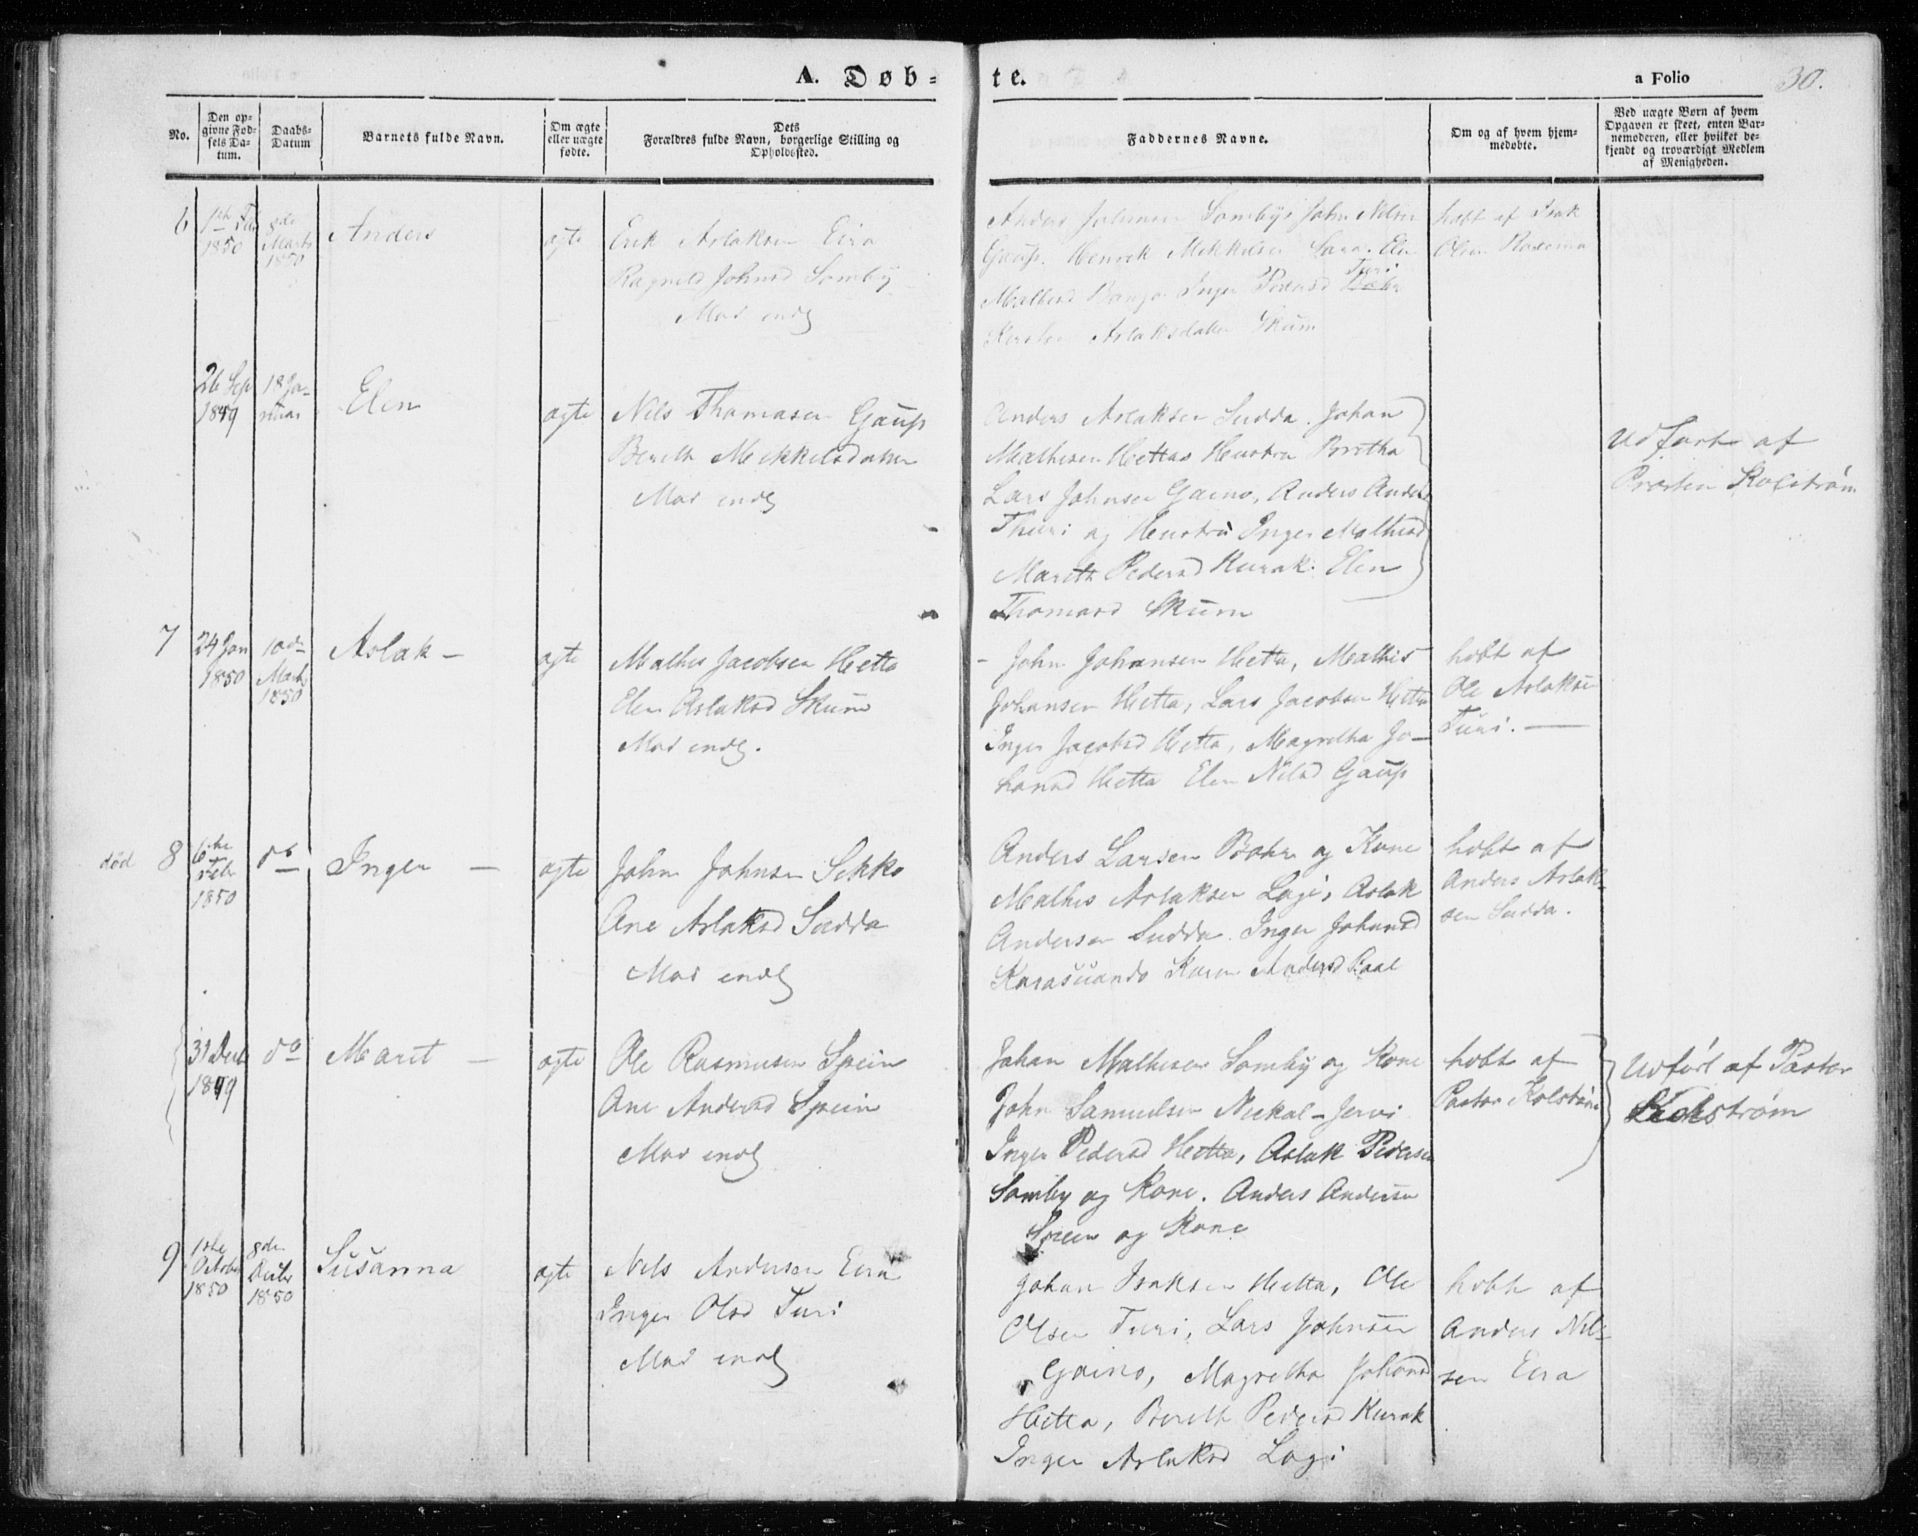 A. Døb-
te.
a Folio
30.
No.
Den op-
givne Fød-
sels Da-
tum.
Daabs-
Datum
Barnets fulde Navn.
Om ægte
eller uægte
fødte.
Dets
Forældres fulde Navn, borgerlige Stilling og
Opholdssted.
Faddernes Navne.
Om og af hvem hjem-
medøbte.
Ved uægte Børn af hvem
Opgaven er skeet, enten Bar-
nemoderen, eller hvilket be-
kjendt og troværdigt Medlem
af Menigheden.
6
1850
8de
Marts
1850
Anders
ægte
Erik Aslaksen Eira
Ragnild Johnsd Somby
Anders Johnsen Somby, John Nilsen
Gaup. Henrik Mikkelsen Sara. Elen
Inger
Turi
Aslaksdatter Skum
hobt af Isak
Olsen
26 Sep
1849
18 Ja-
nuar
Elen
ægte
Nils Thomasen Gaup
Berith Mikkelsdatter
Anders Aslaksen Sudda. Johan
Mathisen Hettas Hustru Britha
Lars Johnsen Gaino, Anders Anders
Thuri og Hustru Inger Mathisd
Marith Pedersd Kurak. Elen
Thomasd Skum
Udført af
7
24 Jan
1850
10de
Marts
1850
Aslak –
ægte
Mathis Jacobsen Hetta
Elen Aslaksd Skum
– John Johansen Hetta, Mathis
Johansen Hetta, Lars Jacobsen Hetta
Inger Jacobsd Hetta, Magretha Jo-
hansd Hetta Elen Nilsd Gaup
hobt af
Ole Aslaksen
Turi. –
død
8
6te
Febr
1850
do
Inger –
ægte
John Johnsen Sikko
Ane Aslaksd Sudda
Anders Larsen Bahr og Kone
Mathis Aslaksen Logi, Aslak
Andersen Sudda. Inger Johansd
Karasuando Karen Andersd
hobt af
Anders Aslak-
sen Sudda.
31 Decb
1849
do
Marit –
ægte
Ole Rasmusen Spein
Ane Andersd Spein
Johan Mathisen Somby og Kone
John Samuelsen Neckal-Jervi
Inger Pedersd Hetta, Aslak Pedersen
Somby og Kone. Anders Andersen
Spein og Kone
hobt af
Pastor Kolstrøm
Udført af Pastor
9
1ste
Octobr
1850
8de
1850
Susanna
ægte
Nils Andersen Eira
Inger Olsd Turi
Johan Isaksen Hetta, Ole
Olsen Turi, Lars Johnsen
Gaino, Magretha Johansd
Hetta, Berith Pedersd Kurak
Inger Aslaksd Logi
hobt af
Anders Nil-
sen Eira